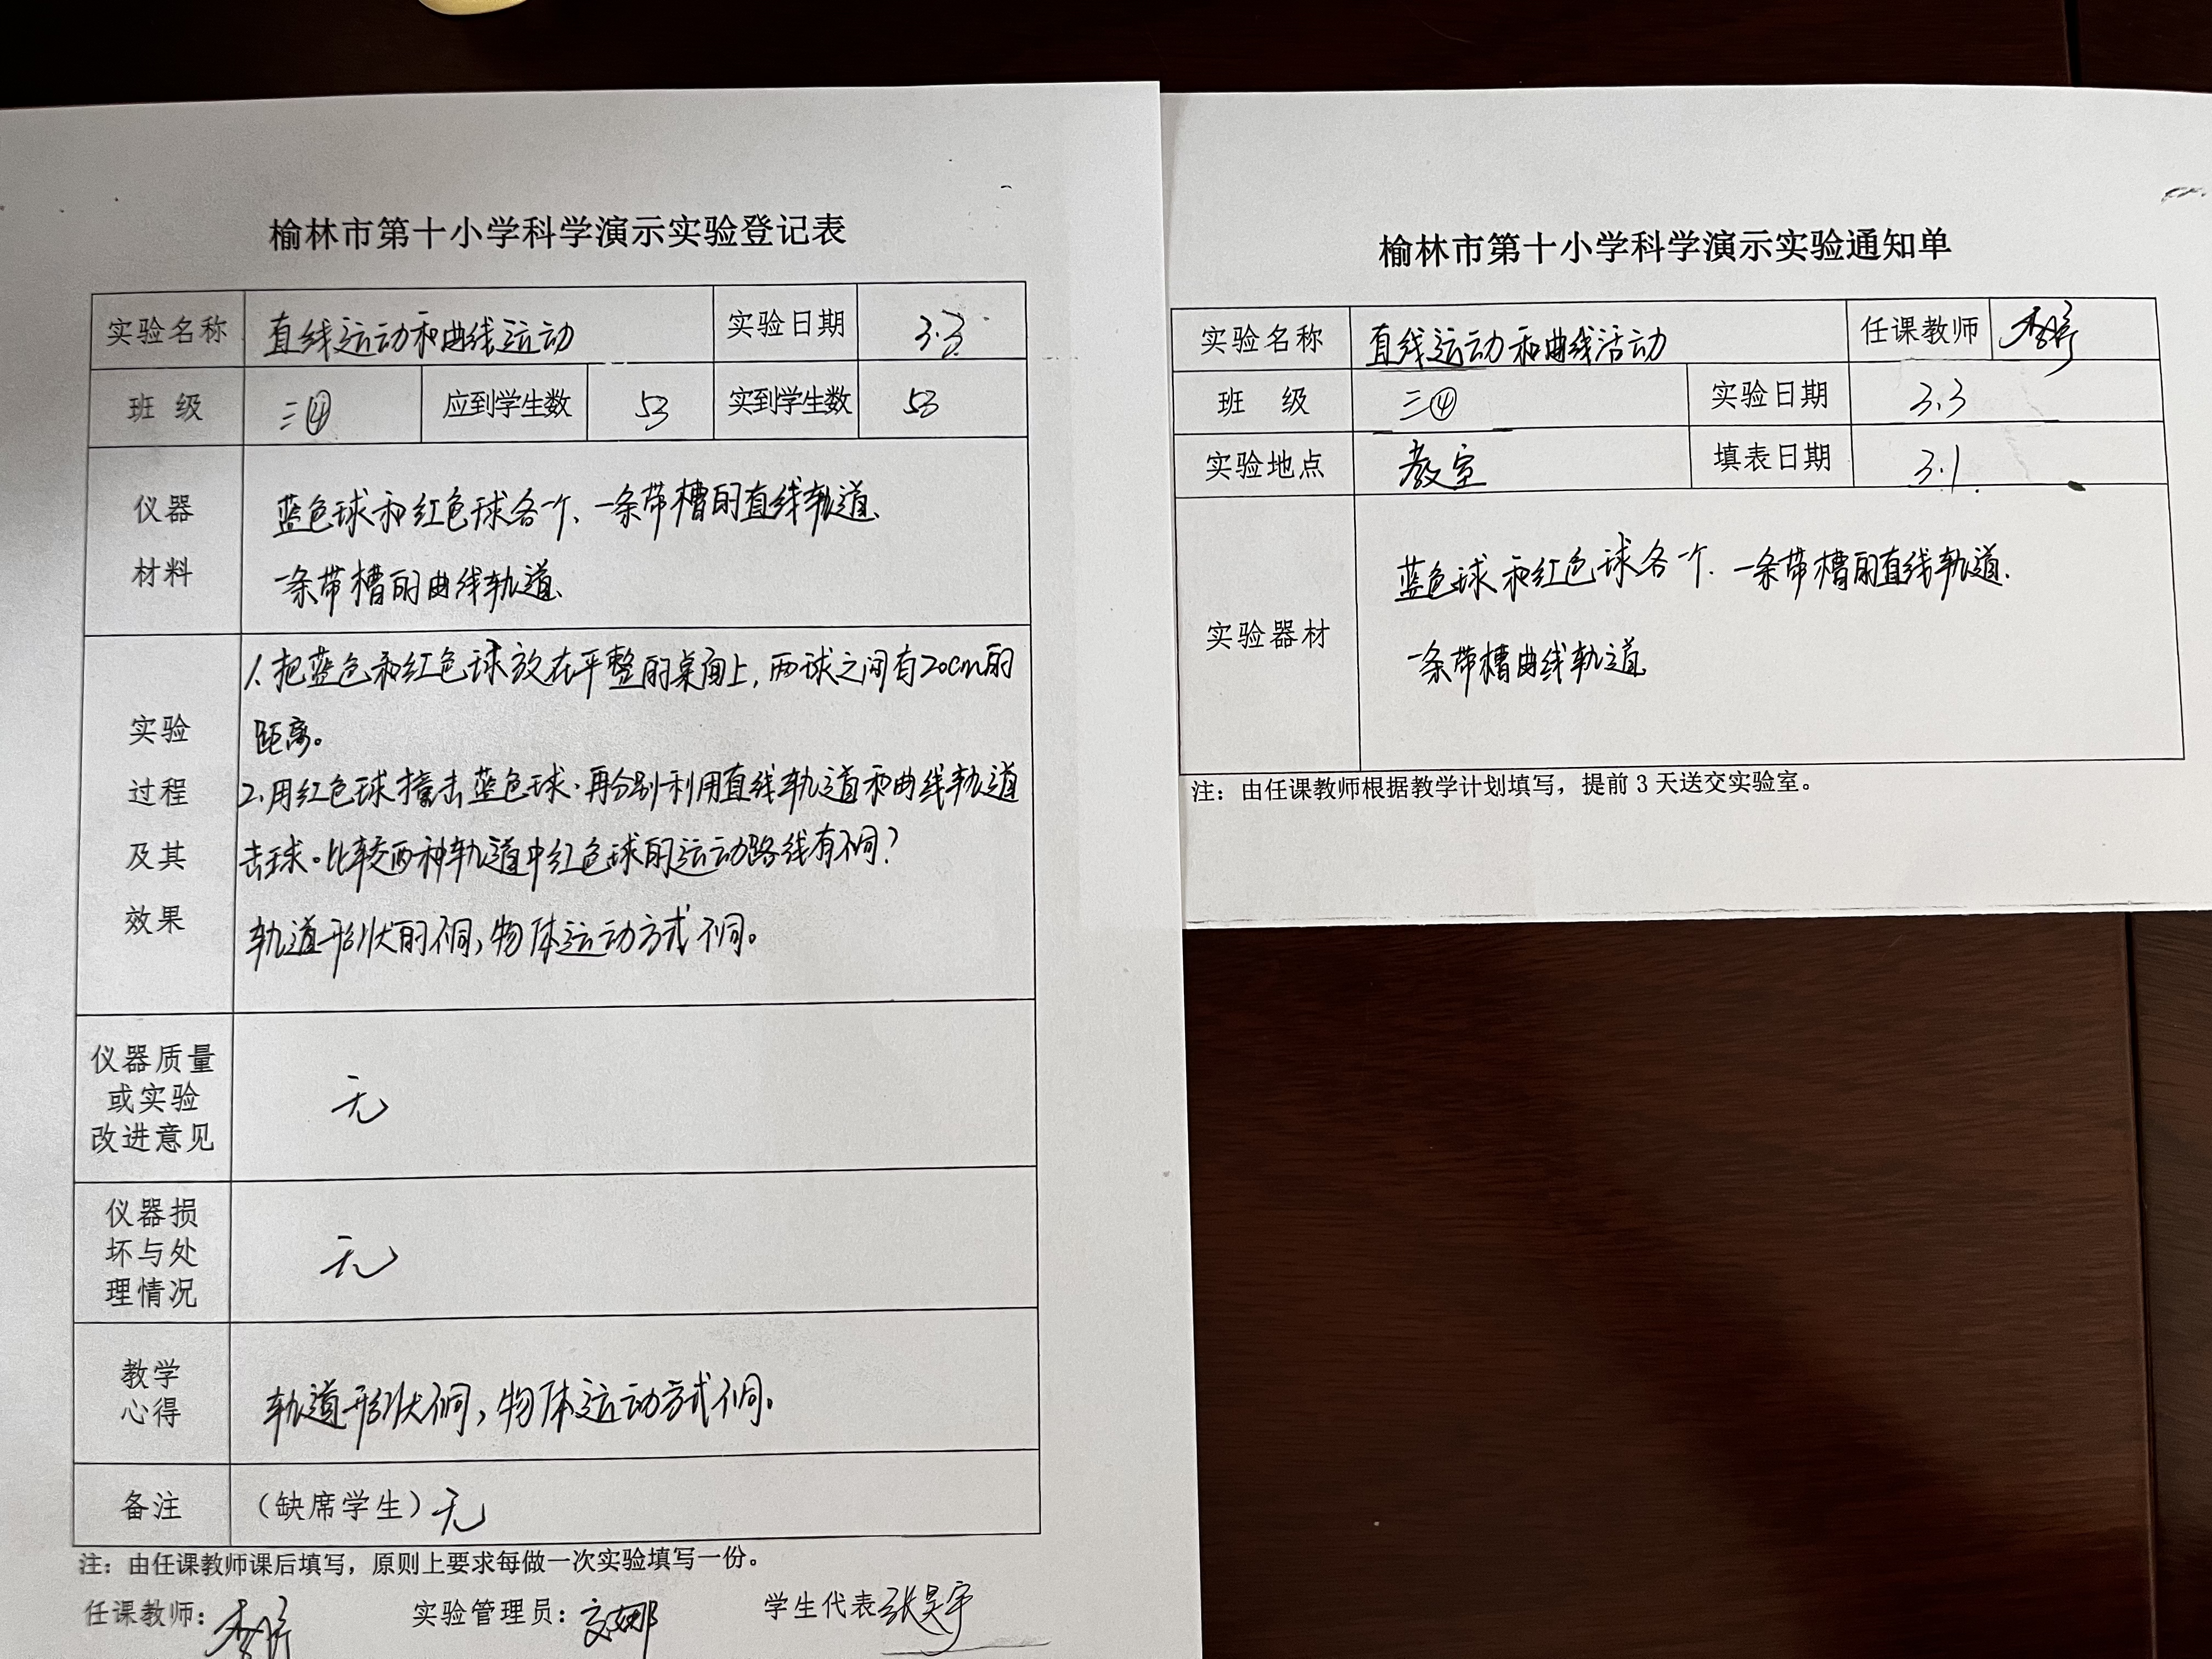 榆林市第十小学科学演示实验登记表
实验名称 直线运动和曲线运动 实验日期 3.3
班 级 三④ 应到学生数 53 实到学生数 53
仪器
材料
蓝色球和红色球各一个、一条带槽的直线轨道、
一条带槽的曲线轨道、
实验
过程
及其
效果
1.把蓝色和红色球放在平整的桌面上,两球之间有20cm的
距离。
2.用红色球撞击蓝色球.再分别利用直线轨道和曲线轨道
击球。比较两种轨道中红色球的运动路线有不同?
轨道形状的不同,物体运动方式不同。
仪器质量
或实验
改进意见
无
仪器损
坏与处
理情况
无
教学
心得
轨道形状不同,物体运动方式不同。
备注 (缺席学生)无
注:由任课教师课后填写,原则上要求每做一次实验填写一份。
任课教师: 实验管理员: 学生代表 张昊宇
榆林市第十小学科学演示实验通知单
实验名称 直线运动和曲线活动 任课教师
班 级 三④ 实验日期 3.3
实验地点 教室 填表日期 3.1
实验器材
蓝色球和红色球各一个.一条带槽的直线轨道.
一条带槽曲线轨道
注:由任课教师根据教学计划填写,提前 3 天送交实验室。